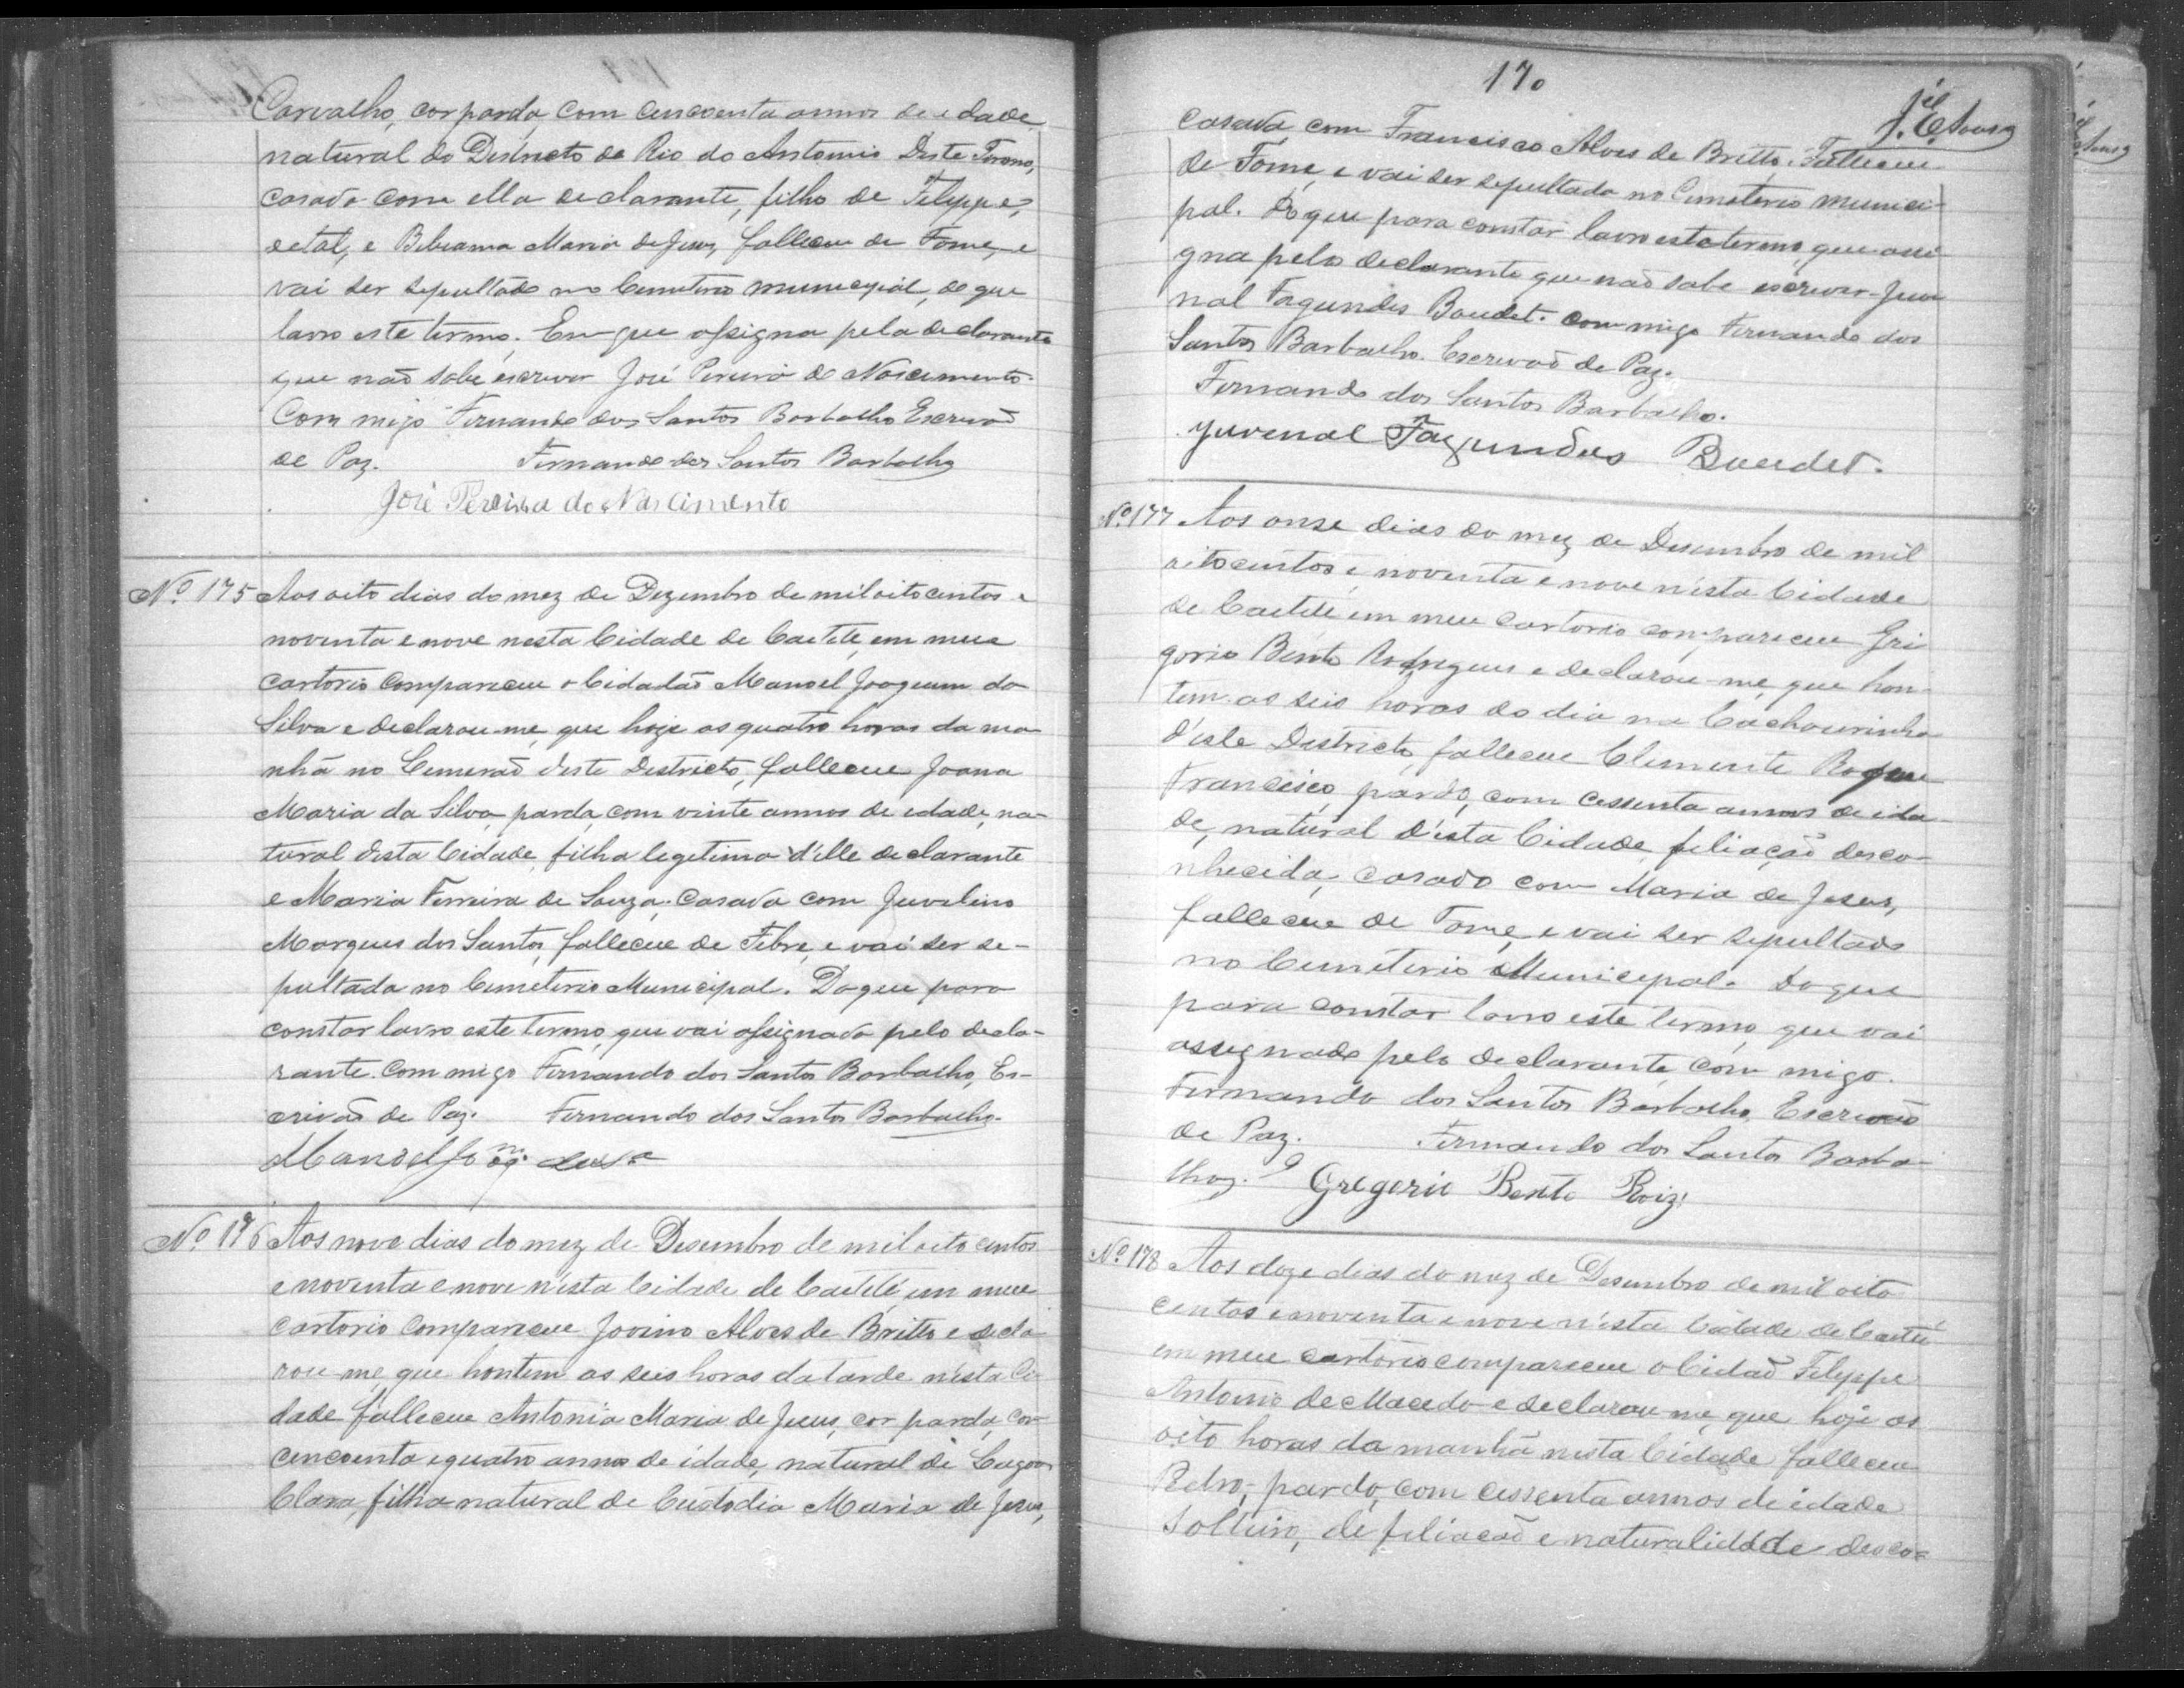 Carvalho, cor parda, com cencoenta annos de idade,
natural do Districto de Rio do Antonio deste Termo,
casado com ella declarante, filho de Felyppe,
de tal, e Bebeanna Maria de Jesus, falleceu de Fome, e
vai ser sepultado no Cemeterio municepial, do que
lavro este termo. Em que assigna pela declarante
que não sabe escrever José Pereira do Nascimento.
Com migo Fernando dos Santos Barbalho Escrivão
de Paz. Fernando dos Santos Barbalho
José Pereira do Nascimento
Nº 175 Aos oito dias do mez de Dezembro de mil oito centos e
noventa e nove nesta Cidade de Caeteté, em meu
cartorio compareceu o Cidadão Manoel Joaquim da
Silva e declarou-me, que hoje as quatro horas da ma-
nhã no deste Districto, falleceu Joana
Maria da Silva, parda, com vinte annos de edade, na-
tural desta Cidade, filha legetima d'elle declarante
e Maria Ferreira de Souza, casada com Juvelino
Marques dos Santos, falleceu de Febre, e vai ser se-
pultada no Cemeterio Municipal. Do que para
constar lavro este termo, que vai assignado pelo decla-
rante. Com migo Fernando dos Santos Barbalho, Es-
crivão de Paz. Fernando dos Santos Barbalho.
Manoel
Nº 176 Aos nove dias do mez de Desembro de mil oito centos
e noventa e nove n'esta Cidade de Caeteté em meu
cartorio compareceu Jovino Alves de Britto e decla-
rou-me, que hontem as seis horas da tarde n'esta Ci-
dade falleceu Antonia Maria de Jesus, cor parda, com
cencoenta e quatro annos de idade, natural de Lagoa
Clara, filha natural de Custodia Maria de Jesus,
170
J. E. Sousa
casada com Francisco Alves de Britto. Falleceu
de Fome, e vai ser sepultada no Cemeterio munici-
pal. Do que para constar lavro este termo, que assi-
gna pelo declarante que não sabe escrever Juve-
nal Fagundes Baudet. com migo Fernando dos
Santos Barbalho. Escrivão de Paz.
Fernando dos Santos Barbalho.
Juvenal Fagundes Baudet.
Nº 177 Aos onse dias do mez de Desembro de mil
oito centos e noventa e nove n'esta Cidade
de Caeteté em meu cartorio compareceu Gri
gorio Bento Rodregues e declarou-me, que hon-
tem as seis horas do dia na Cachoeirinha
d'este Districto, falleceu Clemente Roque
Francisco, pardo, com cessenta annos de ida-
de, natural d'esta Cidade, filiação desco-
nhecida, casado com Maria de Jesus,
falleceu de Fome, e vai ser sepultado
no Cemeterio Municepal. Do que
para constar lavro este termo, que vai
assignado pelo declarante, com migo.
Fernando dos Santos Barbalho, Escrivão
de Paz. Fernando dos Santos Barba-
lho. Gregorio Bento Roiz
Nº 178 Aos doze dias do mez de Desembro de mil oito
centos e noventa e nove n'esta Cidade de Caeteté
em meu cartorio compareceu o Cidão Felyppe
Antonio de Macedo e declarou-me, que hoje as
oito horas da manhã nesta Cidade falleceu
Pedro, pardo, com cessenta annos de idade
Solteiro, de filiação e naturalidade desco=